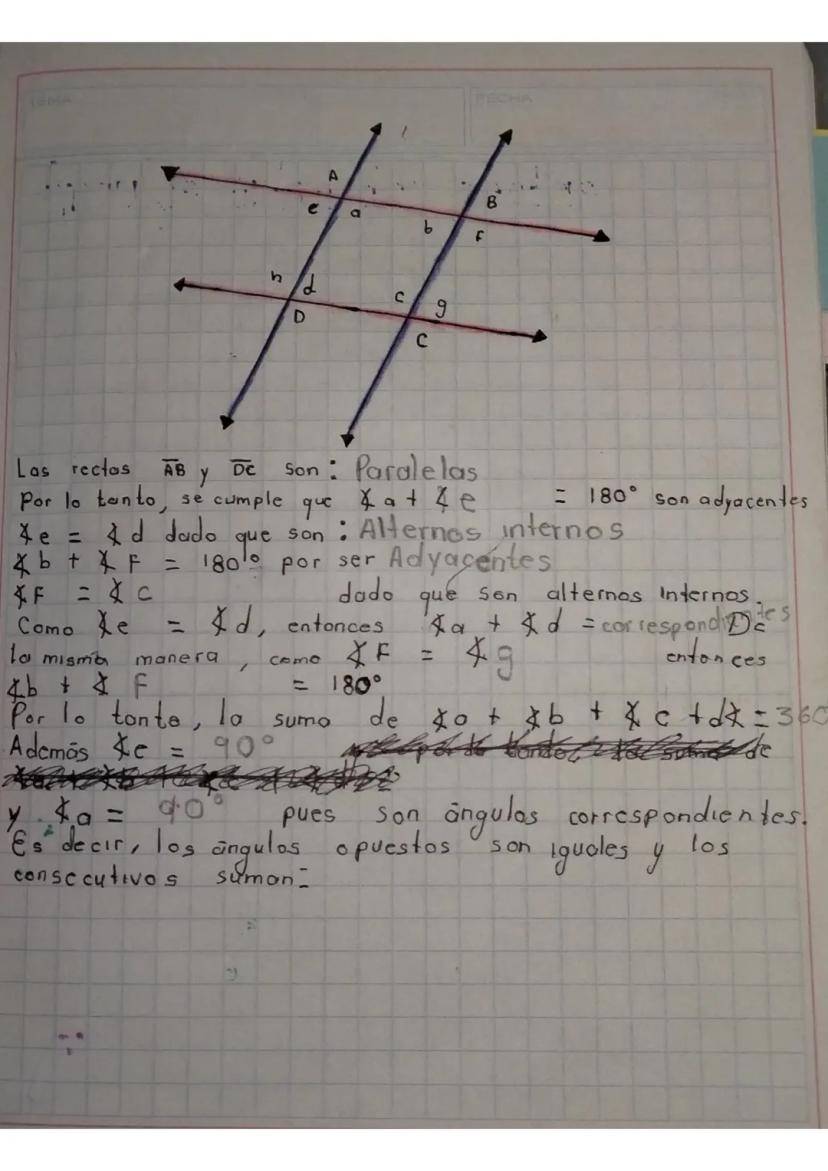 TEMA
FECHA
A
B
e a
b
F
h d
c g
D
C
Las rectas AB y DC son: Paralelas
Por lo tanto, se cumple que ∡a + ∡e = 180° son adyacentes
∡e = ∡d dado que son: Alternos internos
∡b + ∡F = 180° por ser Adyacentes
∡F = ∡c dado que son alternos internos.
Como ∡e = ∡d, entonces ∡a + ∡d = correspondientes De
la misma manera, como ∡F = ∡g entonces
∡b + ∡F = 180°
Por lo tanto, la suma de ∡a + ∡b + ∡c + d∡ = 360
Además ∡e = 90°
y ∡a = 90° pues son ángulos correspondientes.
Es decir, los ángulos opuestos son iguales y los
consecutivos suman: